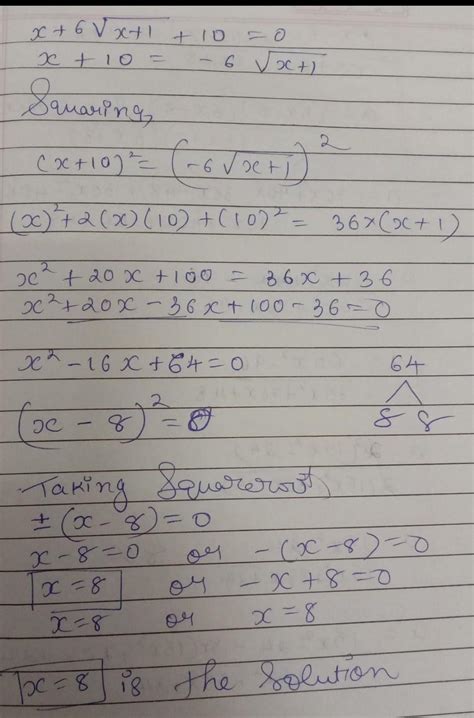 x + 6√(x+1) + 10 = 0
x + 10 = -6 √(x+1)
Squaring,
(x+10)² = (-6√(x+1))²
(x)² + 2(x)(10) + (10)² = 36×(x+1)
x² + 20x + 100 = 36x + 36
x² + 20x - 36x + 100 - 36 = 0
x² - 16x + 64 = 0
64
8 8
(x - 8)² = 0
Taking Squareroot
±(x-8) = 0
x-8=0 or -(x-8)=0
x=8 or -x+8=0
x=8 or x=8
x=8 is the solution